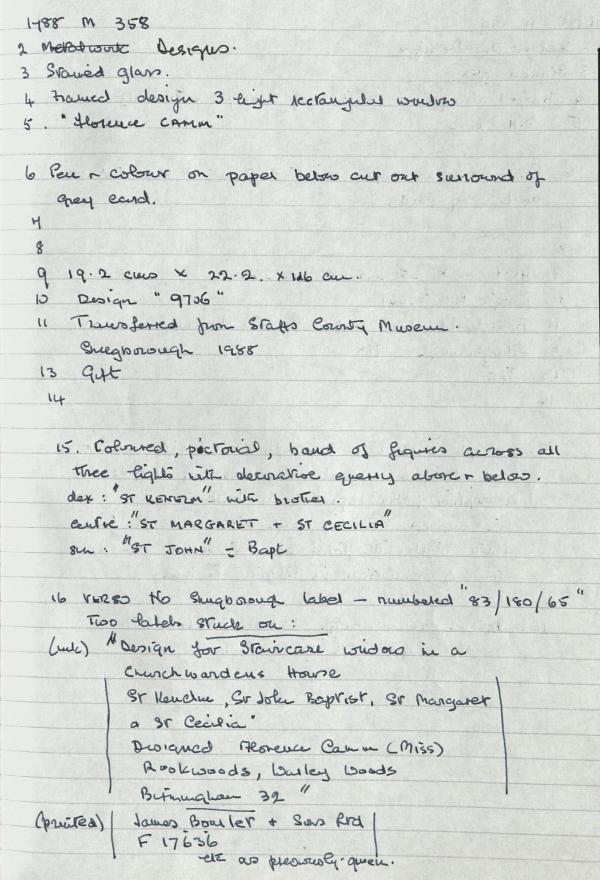 1988 M 358
2 Metalwork Designs.
3 Stained glass.
4 Framed design 3 light rectangular window
5. "Florence CAMM"
6 Pen & colour on paper below cut out surround of
grey card.
7
8
9 19.2 cms × 22.2. × 1.6 cm.
10 Design "9706"
11 Transferred from Staffs County Museum.
Shugborough 1988
13 Gift
14
15. Coloured, pictorial, band of figures across all
three lights with decorative quarry above & below.
dex: "ST KENELM" with brother.
centre: "ST MARGARET + ST CECILIA"
sin: "ST JOHN" = Bapt
16 VERSO No Shugborough label – numbered "83/180/65"
Two labels stuck on:
(ink) "Design for Staircase window in a
Churchwardens House
St Kenelm, St John Baptist, St Margaret
& St Cecilia.
Designed Florence Camm (Miss)
Rookwoods, Warley Woods
Birmingham 32"
(printed) James Bourlet & Sons Ltd
F 17636
etc as previously given.